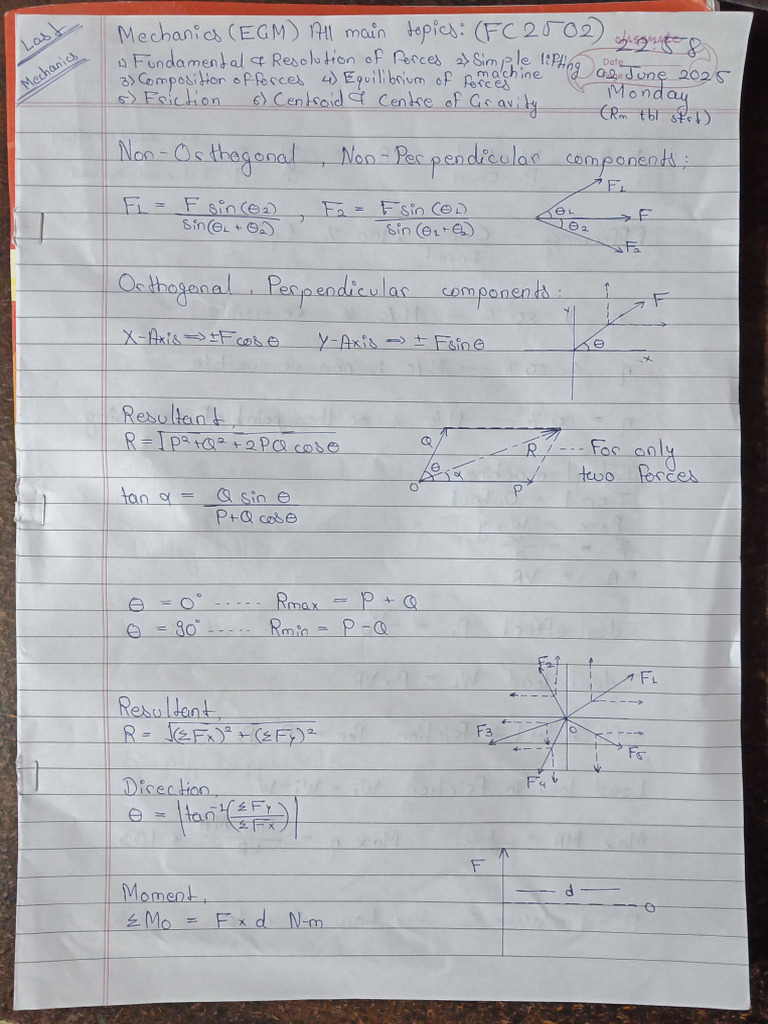 Last
Mechanics
Mechanics (EGM) All main topics: (FC2502)
classmate
2258
Date
02 June 2025
Monday
(Rm tbl strt)
1) Fundamental & Resolution of Forces 2) Simple lifting machine
3) Composition of forces 4) Equilibrium of forces
5) Friction 6) Centroid & Centre of Gravity
Non-Orthogonal, Non-Perpendicular components:
F1 = F sin(θ2) / sin(θ1 + θ2) , F2 = F sin(θ1) / sin(θ1+θ2)
F1
θ1
F
θ2
F2
Orthogonal, Perpendicular components:
X-Axis ⇒ ±F cosθ Y-Axis ⇒ ± F sinθ
Y
F
θ
X
Resultant,
R = √P²+Q²+2PQ cosθ
Q
R
θ
α
O
P
---- For only
two forces
tan α = Q sin θ / P+Q cosθ
θ = 0° ----- Rmax = P + Q
θ = 90° ----- Rmin = P - Q
Resultant,
R = √(ΣFx)² + (ΣFy)²
F2
F1
F3
O
F5
F4
Direction,
θ = |tan⁻¹(ΣFy / ΣFx)|
Moment,
ΣMo = F × d N-m
F
d
O